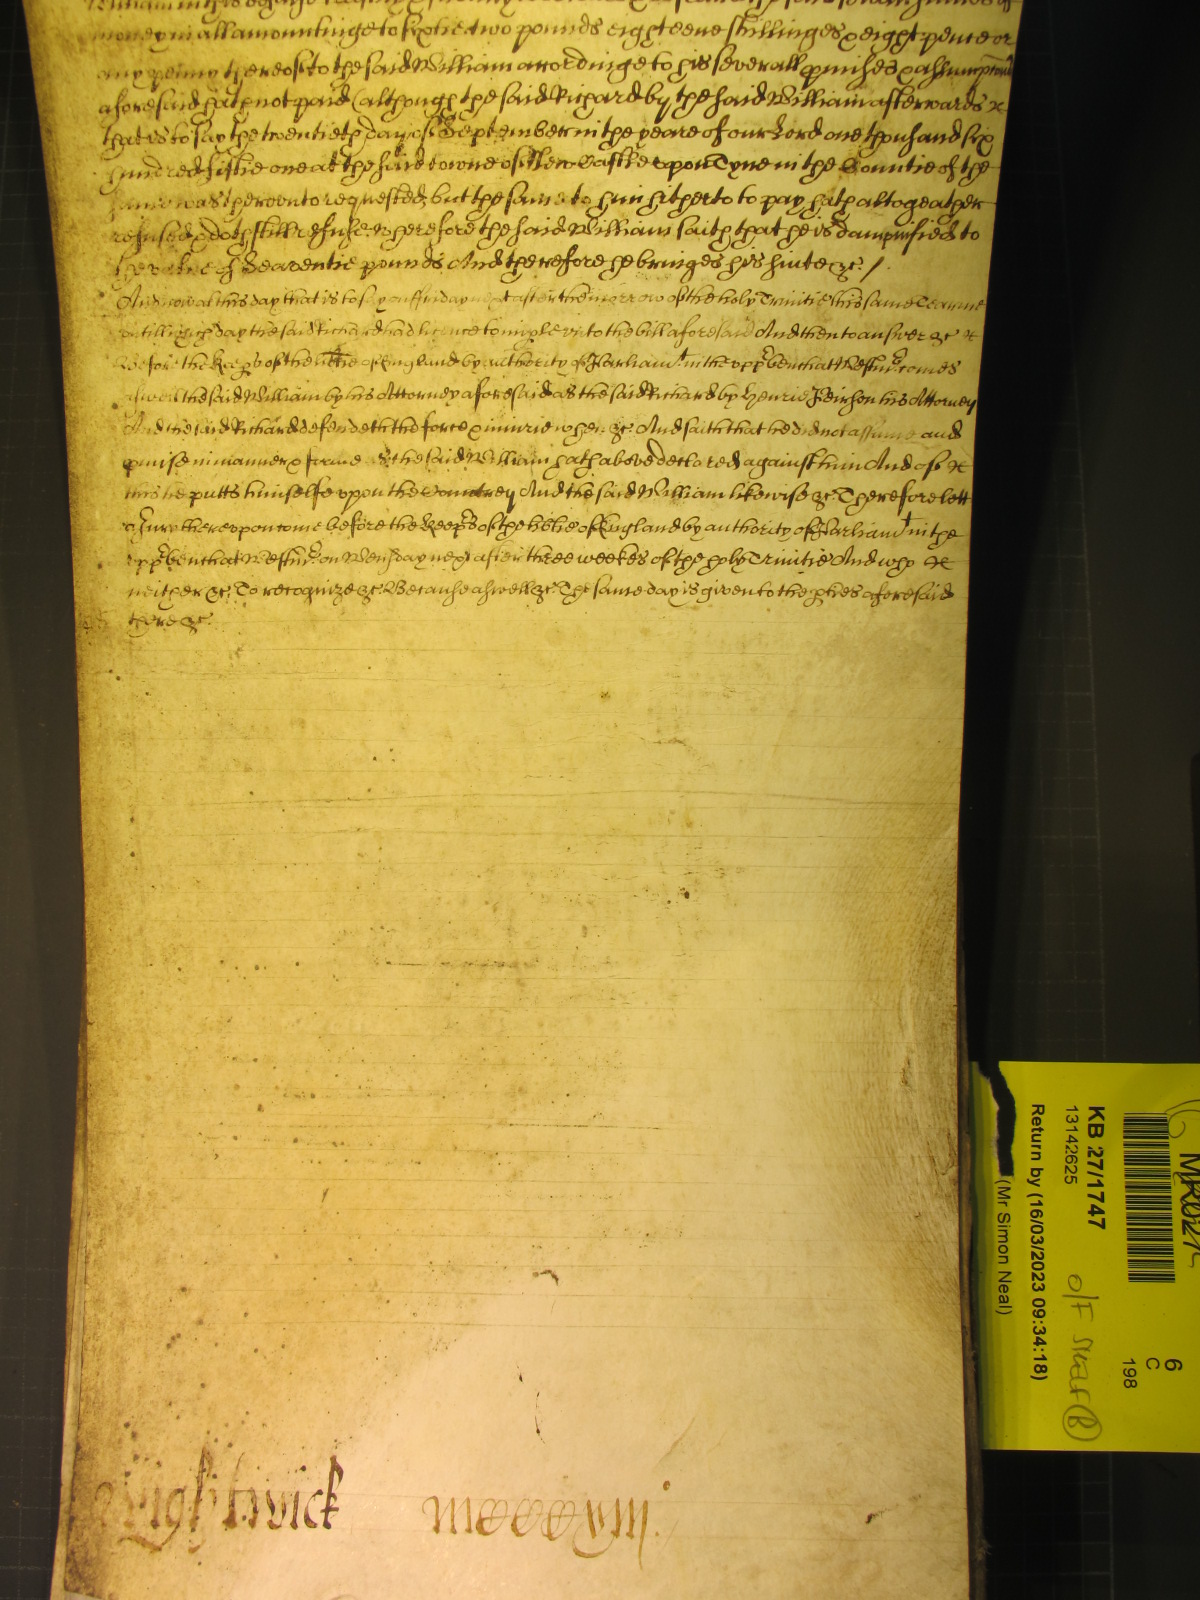 money in all amountinge to sixtie two pounds eighteene shillinges & eight pence or
any penny thereof to the said William accordinge to his severall pmises & assumptions
aforesaid hath not paid (although the said Richard by the said William afterwards &
that is to say the twentieth day of September in the yeare of our Lord one thousand six
hundred fiftie one at the said towne of New Castle upon Tyne in the Countie of the
same was thereunto requested, but the same to him hitherto to pay hath altogeather
refused & doth still refuse. Wherefore the said William saith that he is damnified to
the value of Seaventie pounds And therefore he bringes his suite &c. /
And now at this day that is to say on ffriday next after the morrow of the holy Trinitie this same Tearme
untill which day the said Richard had licence to imple vnto the bill aforesaid And then to answer &c &
Before the Keeps of the libtie of England by authority of Parliamt in the vpp bench at Westmr comes
aswell the said William by his Attorney aforesaid as the said Richard by Henrie his Attorney
And the said Richard defendeth the force & iniurie when &c. And saith that he did not assume and
pmise in manner & forme as the said William hath above declared against him And of &
this he putts himselfe vpon the Countrey And the said William likewise &c. Therefore lett
a Jury therevpon come before the Keeps of the libtie of England by authority of Parliamt in the
vpp bench at Westmr on Wensday next after three weekes of the holy Trinitie And who &
neither &c. To recognize &c. Because aswell &c. The same day is given to the pties aforesaid
there &c.
Wightwick
KB 27/1747
13142625
Return by (16/03/2023 09:34:18)
(Mr Simon Neal)
6
C
198